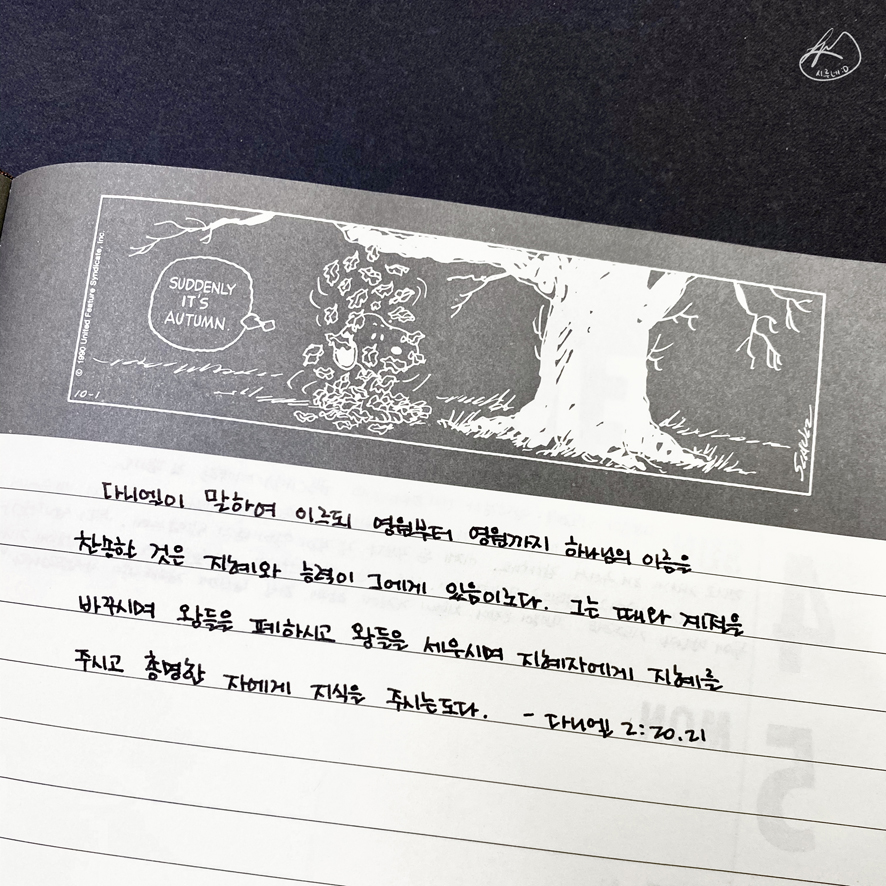 시루네:D
SUDDENLY
IT'S
AUTUMN.
© 1990 United Feature Syndicate, Inc.
10-1
SCHULZ
다니엘이 말하여 이르되 영원부터 영원까지 하나님의 이름을
찬송할 것은 지혜와 능력이 그에게 있음이로다. 그는 때와 계절을
바꾸시며 왕들을 폐하시고 왕들을 세우시며 지혜자에게 지혜를
주시고 총명한 자에게 지식을 주시는도다. - 다니엘 2:20.21
MON
4
5